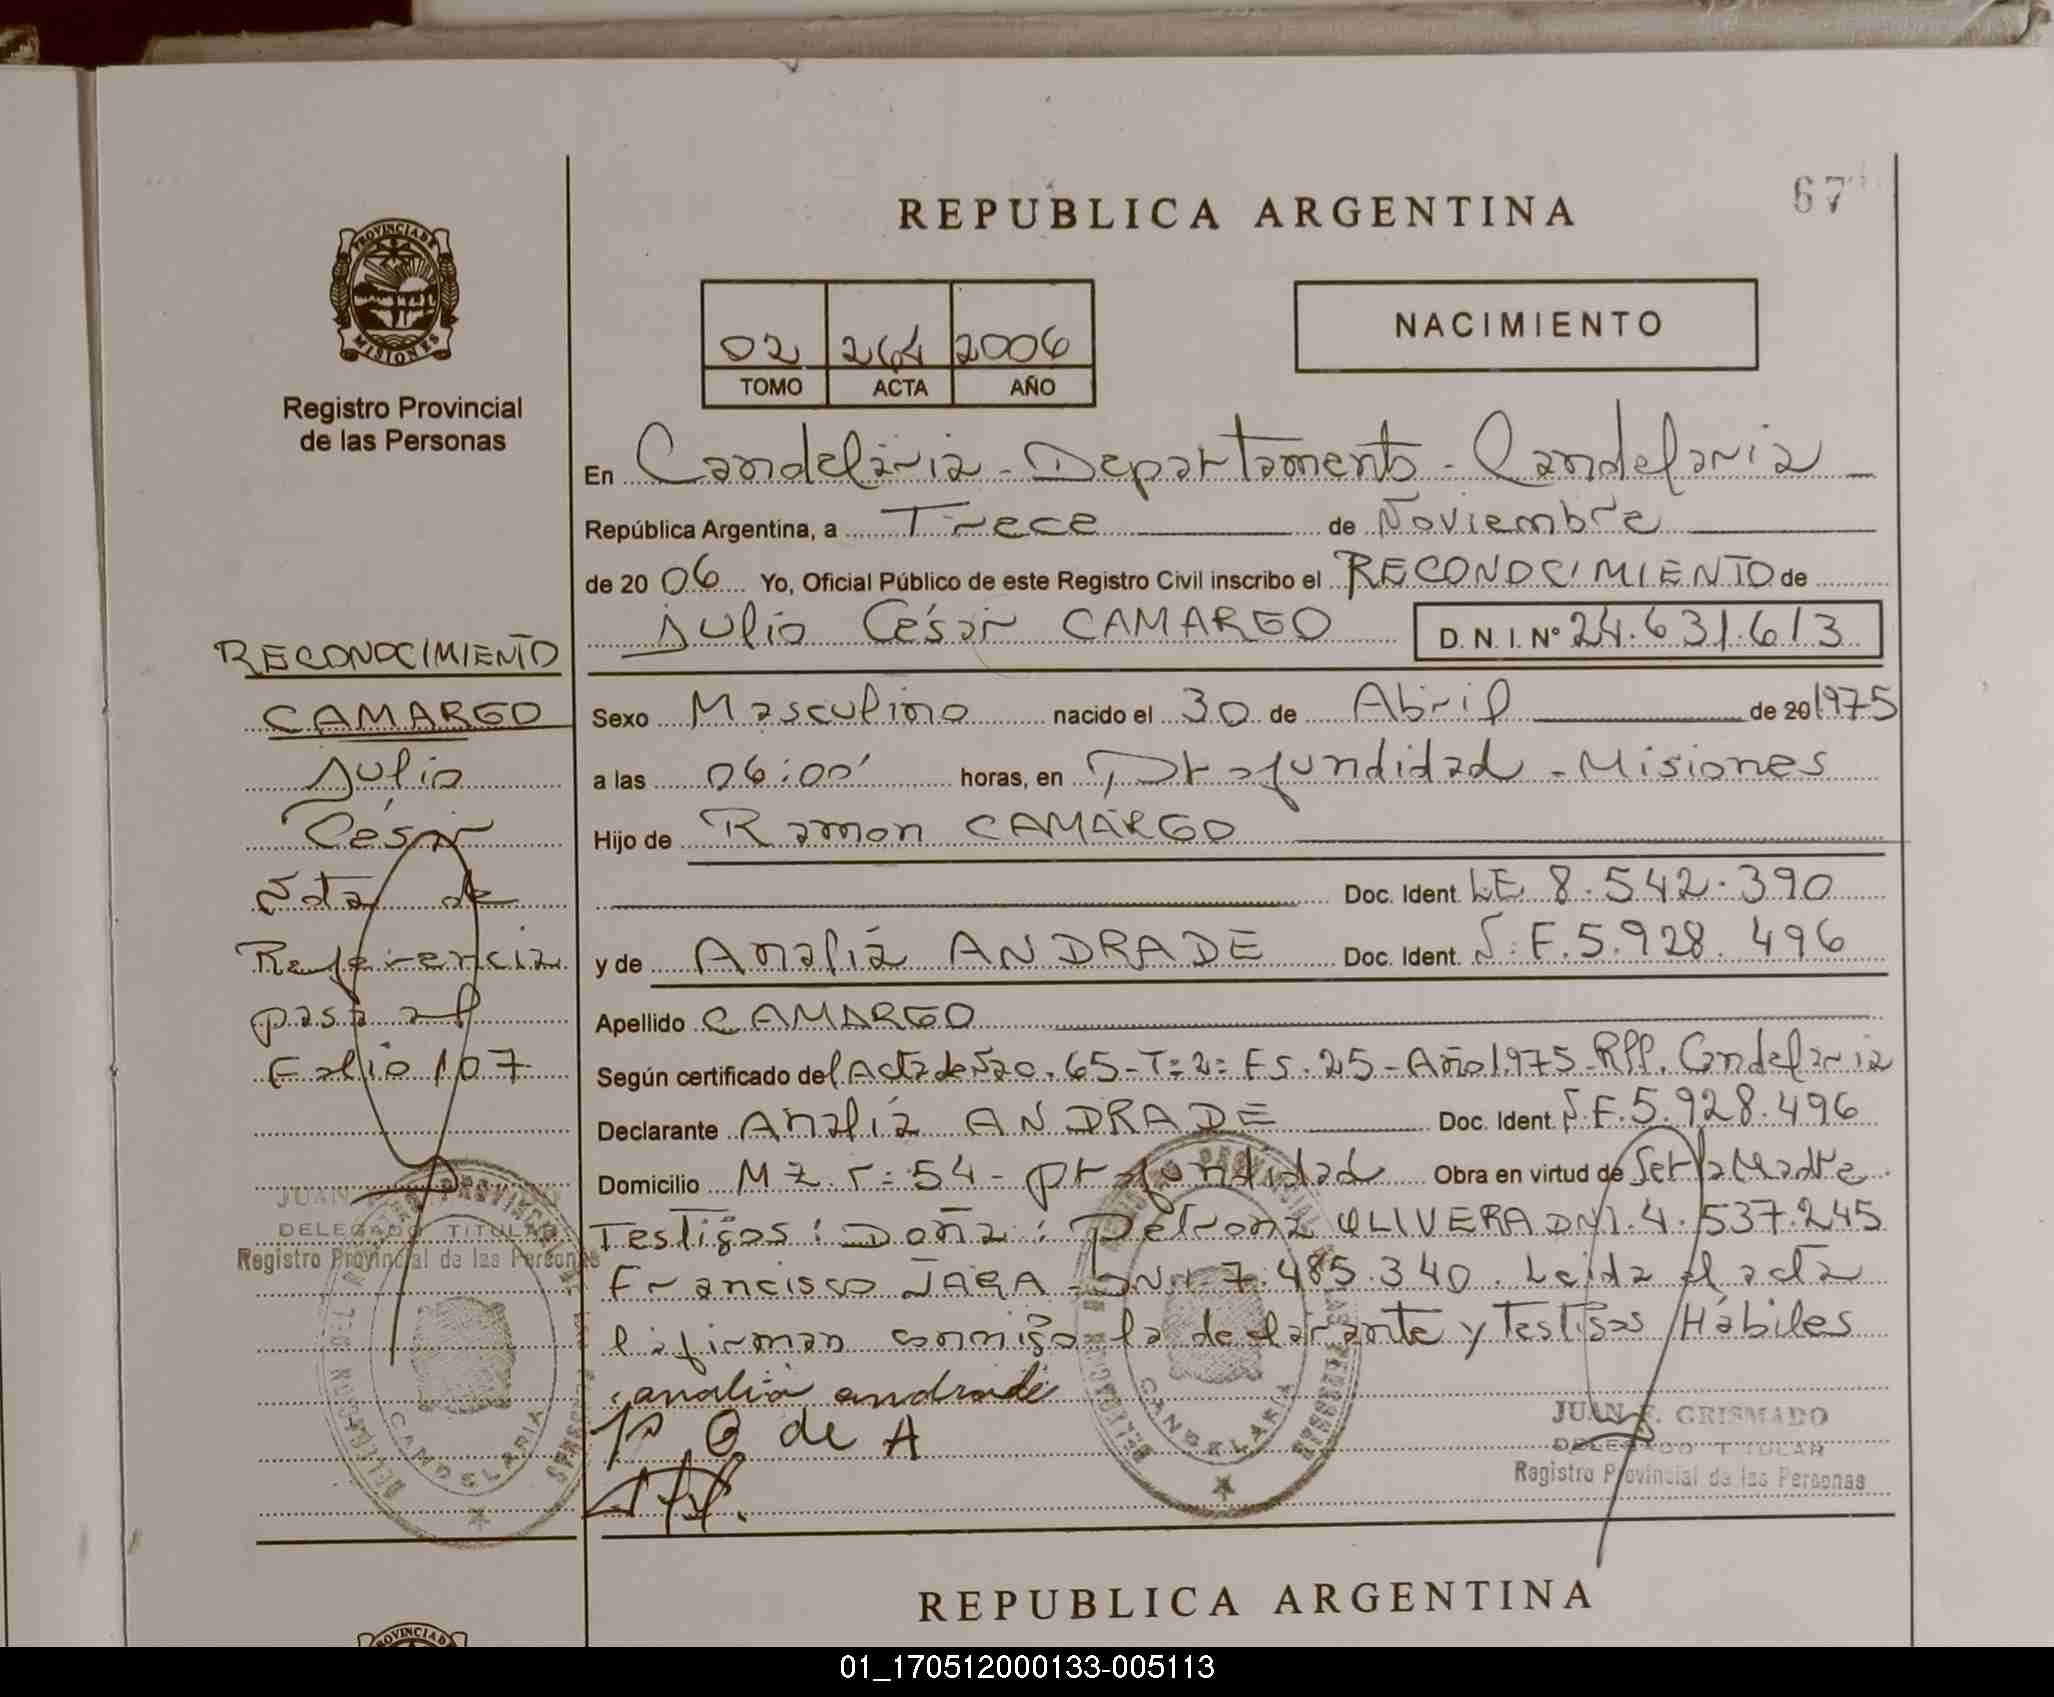 67
REPUBLICA ARGENTINA
PROVINCIA DE
MISIONES
Registro Provincial
de las Personas
02 264 2006
TOMO ACTA AÑO
NACIMIENTO
En Candelaria - Departamento - Candelaria
República Argentina, a Trece de Noviembre
de 20 06 Yo, Oficial Público de este Registro Civil inscribo el RECONOCIMIENTO de
Julio César CAMARGO D. N. I. Nº 24.631.613
Sexo Masculino nacido el 30 de Abril de 20 1975
a las 06:00' horas, en Profundidad - Misiones
Hijo de Ramon CAMARGO
Doc. Ident. LE 8.542.390
y de Analía ANDRADE Doc. Ident. F. 5.928.496
Apellido CAMARGO
Según certificado del Acta de Nac. 65 - T: 2: Fs. 25 - Año 1.975 - RPP. Candelaria
Declarante Analía ANDRADE Doc. Ident. F. 5.928.496
Domicilio MZ. 54 - Profundidad Obra en virtud de Ser la Madre
Testigos: Doña: Petrona OLIVERA DNI. 4.537.245
Francisco JARA - DNI. 7.485.340. Leida el acta
la firman conmigo la declarante y Testigos Hábiles
analia andrade
O de A
JUAN GRISMADO
DELEGADO TITULAR
Registro Provincial de las Personas
RECONOCIMIENTO
CAMARGO
Julio
César
Nota de
Referencia
pasa al
Folio 107
JUAN
DELEGADO TITULAR
Registro Provincial de las Personas
CANDELARIA
CANDELARIA
REPUBLICA ARGENTINA
PROVINCIA DE
01_170512000133-005113